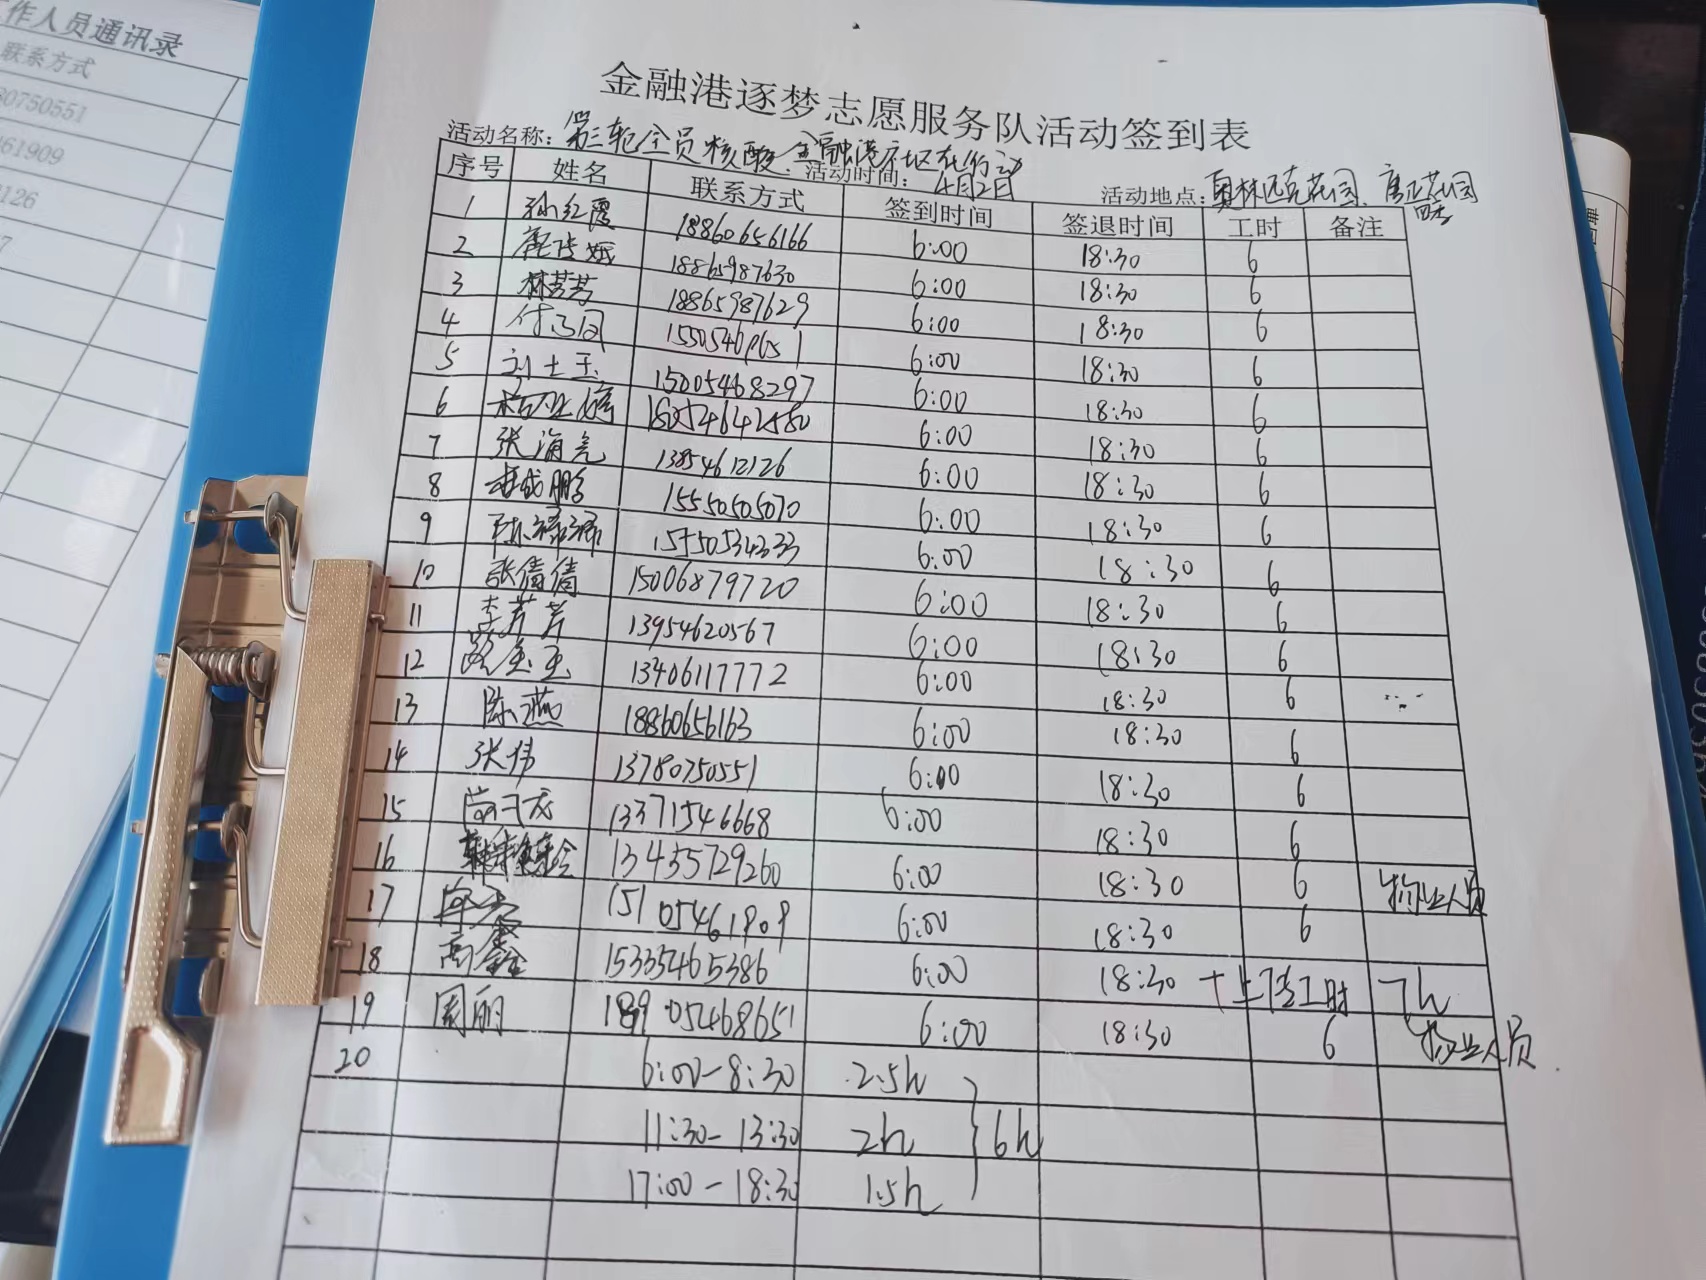 工作人员通讯录
联系方式
80750551
461909
126
7
金融港逐梦志愿服务队活动签到表
活动名称：第三轮全员核酸、金融港社区在行动
活动时间：4月2日 活动地点：奥林匹克花园、 花园
序号 姓名 联系方式 签到时间 签退时间 工时 备注
1 孙红霞 18860656166 6:00 18:30 6
2 18865987630 6:00 18:30 6
3 林芳芳 18865987629 6:00 18:30 6
4 6:00 18:30 6
5 刘士玉 15005468297 6:00 18:30 6
6 6:00 18:30 6
7 张海亮 13854612126 6:00 18:30 6
8 鹏 15550505070 6:00 18:30 6
9 陈 15750534333 6:00 18:30 6
10 张倩倩 15006879720 6:00 18:30 6
11 李芹芹 13954620567 6:00 18:30 6
12 路 玉 13406117772 6:00 18:30 6
13 陈燕 18860656163 6:00 18:30 6
14 张伟 13780750551 6:00 18:30 6
15 尚 龙 13371546668 6:00 18:30 6
16 13435729260 6:00 18:30 6 物业人员
17 15105461909 6:00 18:30 6
18 高鑫 15335465386 6:00 18:30 +上传工时 7h
19 周丽 18905468651 6:00 18:30 6 物业人员
20 6:00-8:30 2.5h
11:30-13:30 2h 6h
17:00-18:30 1.5h